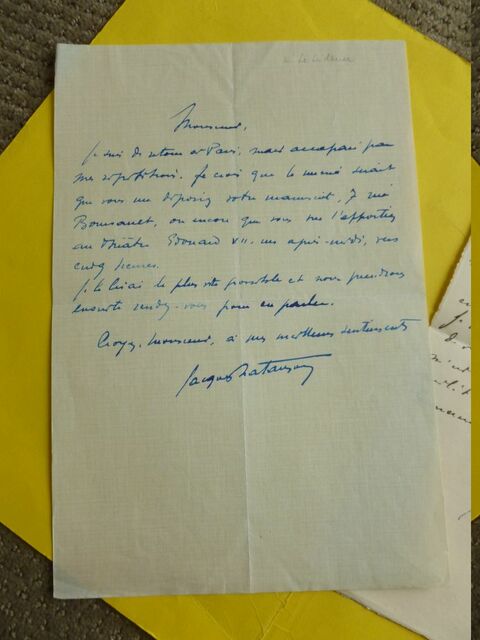 Monsieur,
Je suis de retour à Paris, mais accaparé par
mes répétitions. Je crois que le mieux serait
que vous me déposiez votre manuscrit, 7 rue
Boursault, ou encore que vous me l'apportiez
au théâtre Edouard VII. un après-midi, vers
cinq heures.
Je le lirai le plus vite possible et nous prendrons
ensuite rendez-vous pour en parler.
Croyez, Monsieur, à mes meilleurs sentiments
Jacques Natanson